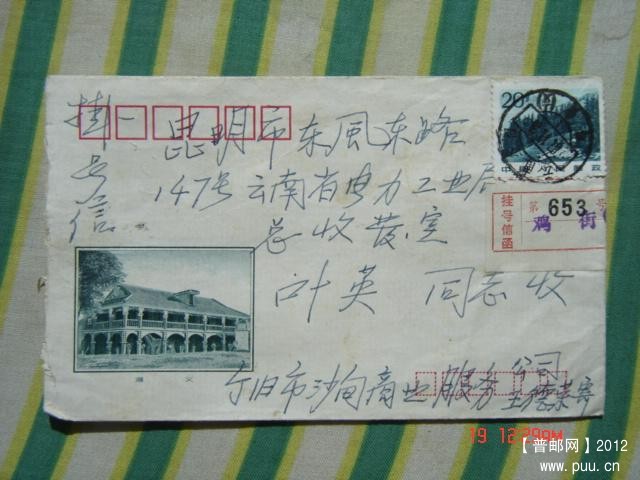 挂号信
昆明市东風东路
147号云南省电力工业局
总收发室
叶英 同志收
个旧市沙甸商业服务公司
20分
中国人民邮政
挂号信函
第 653 号
鸡街
遵义
【普邮网】2012
www.puu.cn